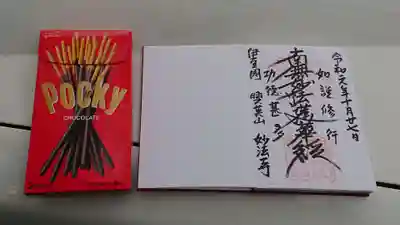 POCKY
CHOCOLATE
令和元年十月廿七日
如説修行
南無妙法蓮華経
功徳甚多
伊豆國 興英山 妙法寺